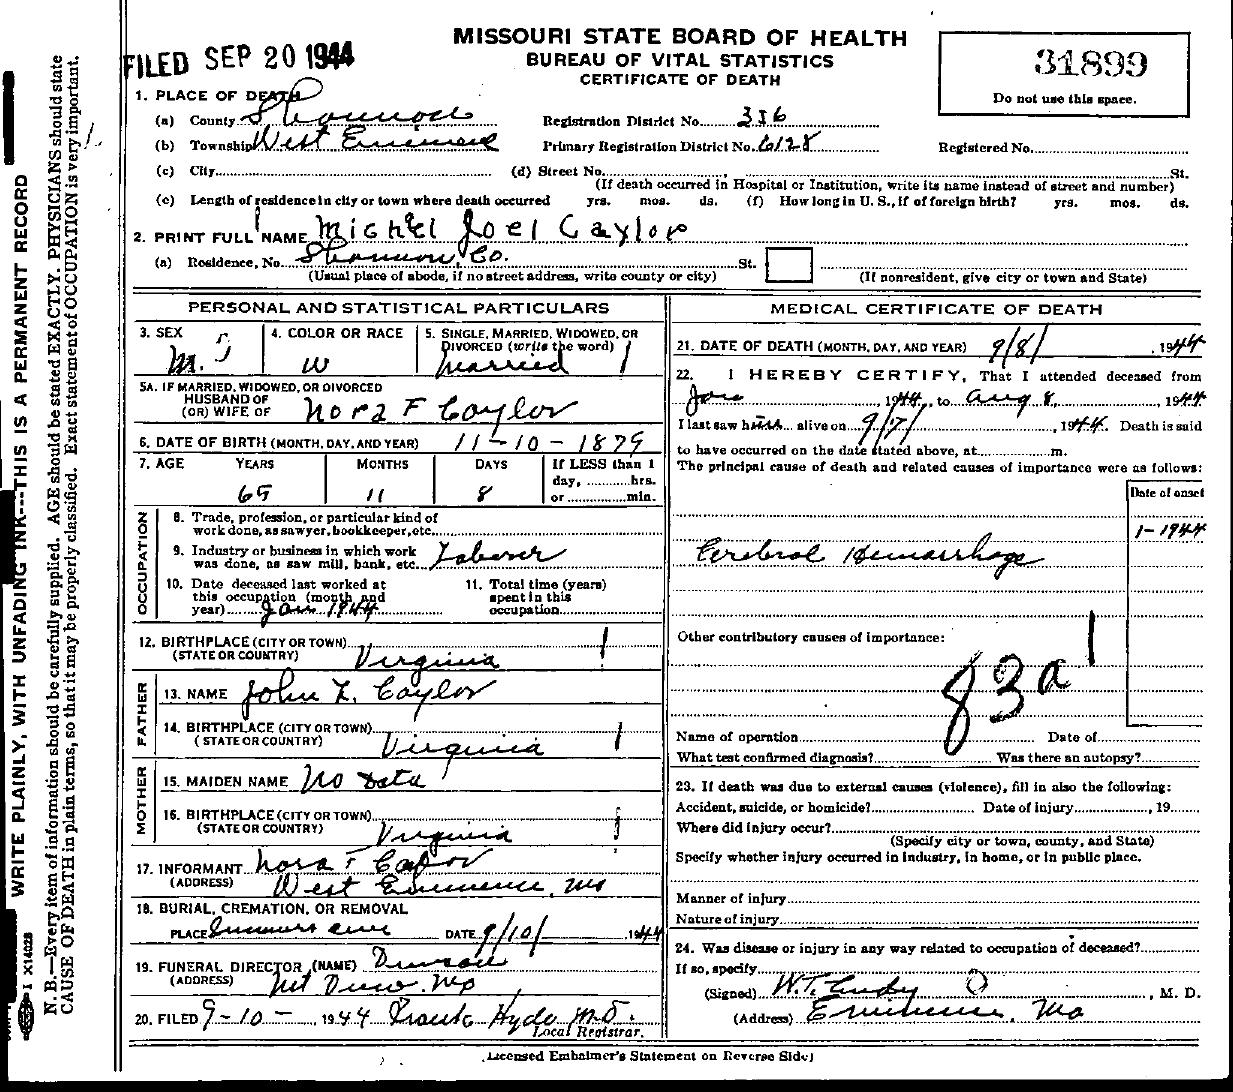 FILED SEP 20 1944
MISSOURI STATE BOARD OF HEALTH
BUREAU OF VITAL STATISTICS
CERTIFICATE OF DEATH
31899
Do not use this space.
1. PLACE OF DEATH
(a) County Shannon Registration District No. 336
(b) Township West Eminence Primary Registration District No. 6128 Registered No.
(c) City (d) Street No. St.
(If death occurred in Hospital or Institution, write its name instead of street and number)
(e) Length of residence in city or town where death occurred yrs. mos. ds. (f) How long in U. S., if of foreign birth? yrs. mos. ds.
2. PRINT FULL NAME Michel Joel Caylor
(a) Residence, No. Shannon Co. St.
(Usual place of abode, if no street address, write county or city) (If nonresident, give city or town and State)
PERSONAL AND STATISTICAL PARTICULARS
3. SEX M. 4. COLOR OR RACE W 5. SINGLE, MARRIED, WIDOWED, OR DIVORCED (write the word) married
5A. IF MARRIED, WIDOWED, OR DIVORCED
HUSBAND OF
(OR) WIFE OF Nora F Caylor
6. DATE OF BIRTH (MONTH, DAY, AND YEAR) 11-10-1879
7. AGE YEARS MONTHS DAYS If LESS than 1
day, hrs.
65 11 8 or min.
OCCUPATION
8. Trade, profession, or particular kind of
work done, as sawyer, bookkeeper, etc.
9. Industry or business in which work
was done, as saw mill, bank, etc. Laborer
10. Date deceased last worked at
this occupation (month and
year) Jan 1944
11. Total time (years)
spent in this
occupation
12. BIRTHPLACE (CITY OR TOWN)
(STATE OR COUNTRY) Virginia
FATHER
13. NAME John L. Caylor
14. BIRTHPLACE (CITY OR TOWN)
(STATE OR COUNTRY) Virginia
MOTHER
15. MAIDEN NAME No Data
16. BIRTHPLACE (CITY OR TOWN)
(STATE OR COUNTRY) Virginia
17. INFORMANT Nora F Caylor
(ADDRESS) West Eminence, Mo
18. BURIAL, CREMATION, OR REMOVAL
PLACE DATE 9/10/ 1944
19. FUNERAL DIRECTOR (NAME) Duncan
(ADDRESS) Mt View, Mo
20. FILED 9-10-, 1944 Frank Hyde M.D.
Local Registrar.
MEDICAL CERTIFICATE OF DEATH
21. DATE OF DEATH (MONTH, DAY, AND YEAR) 9/8/, 1944
22. I HEREBY CERTIFY, That I attended deceased from
Jan, 1944, to Aug 8, 1944
I last saw him alive on 9/7/, 1944. Death is said
to have occurred on the date stated above, at m.
The principal cause of death and related causes of importance were as follows:
Date of onset
1-1944
Cerebral Hemarrhage
Other contributory causes of importance:
83a
Name of operation Date of
What test confirmed diagnosis? Was there an autopsy?
23. If death was due to external causes (violence), fill in also the following:
Accident, suicide, or homicide? Date of injury, 19
Where did injury occur?
(Specify city or town, county, and State)
Specify whether injury occurred in industry, in home, or in public place.
Manner of injury
Nature of injury
24. Was disease or injury in any way related to occupation of deceased?
If so, specify
(Signed) W.T. , M. D.
(Address) Eminence, Mo
Licensed Embalmer's Statement on Reverse Side
WRITE PLAINLY, WITH UNFADING INK---THIS IS A PERMANENT RECORD
N. B.—Every item of information should be carefully supplied. AGE should be stated EXACTLY. PHYSICIANS should state
CAUSE OF DEATH in plain terms, so that it may be properly classified. Exact statement of OCCUPATION is very important.
I X14028